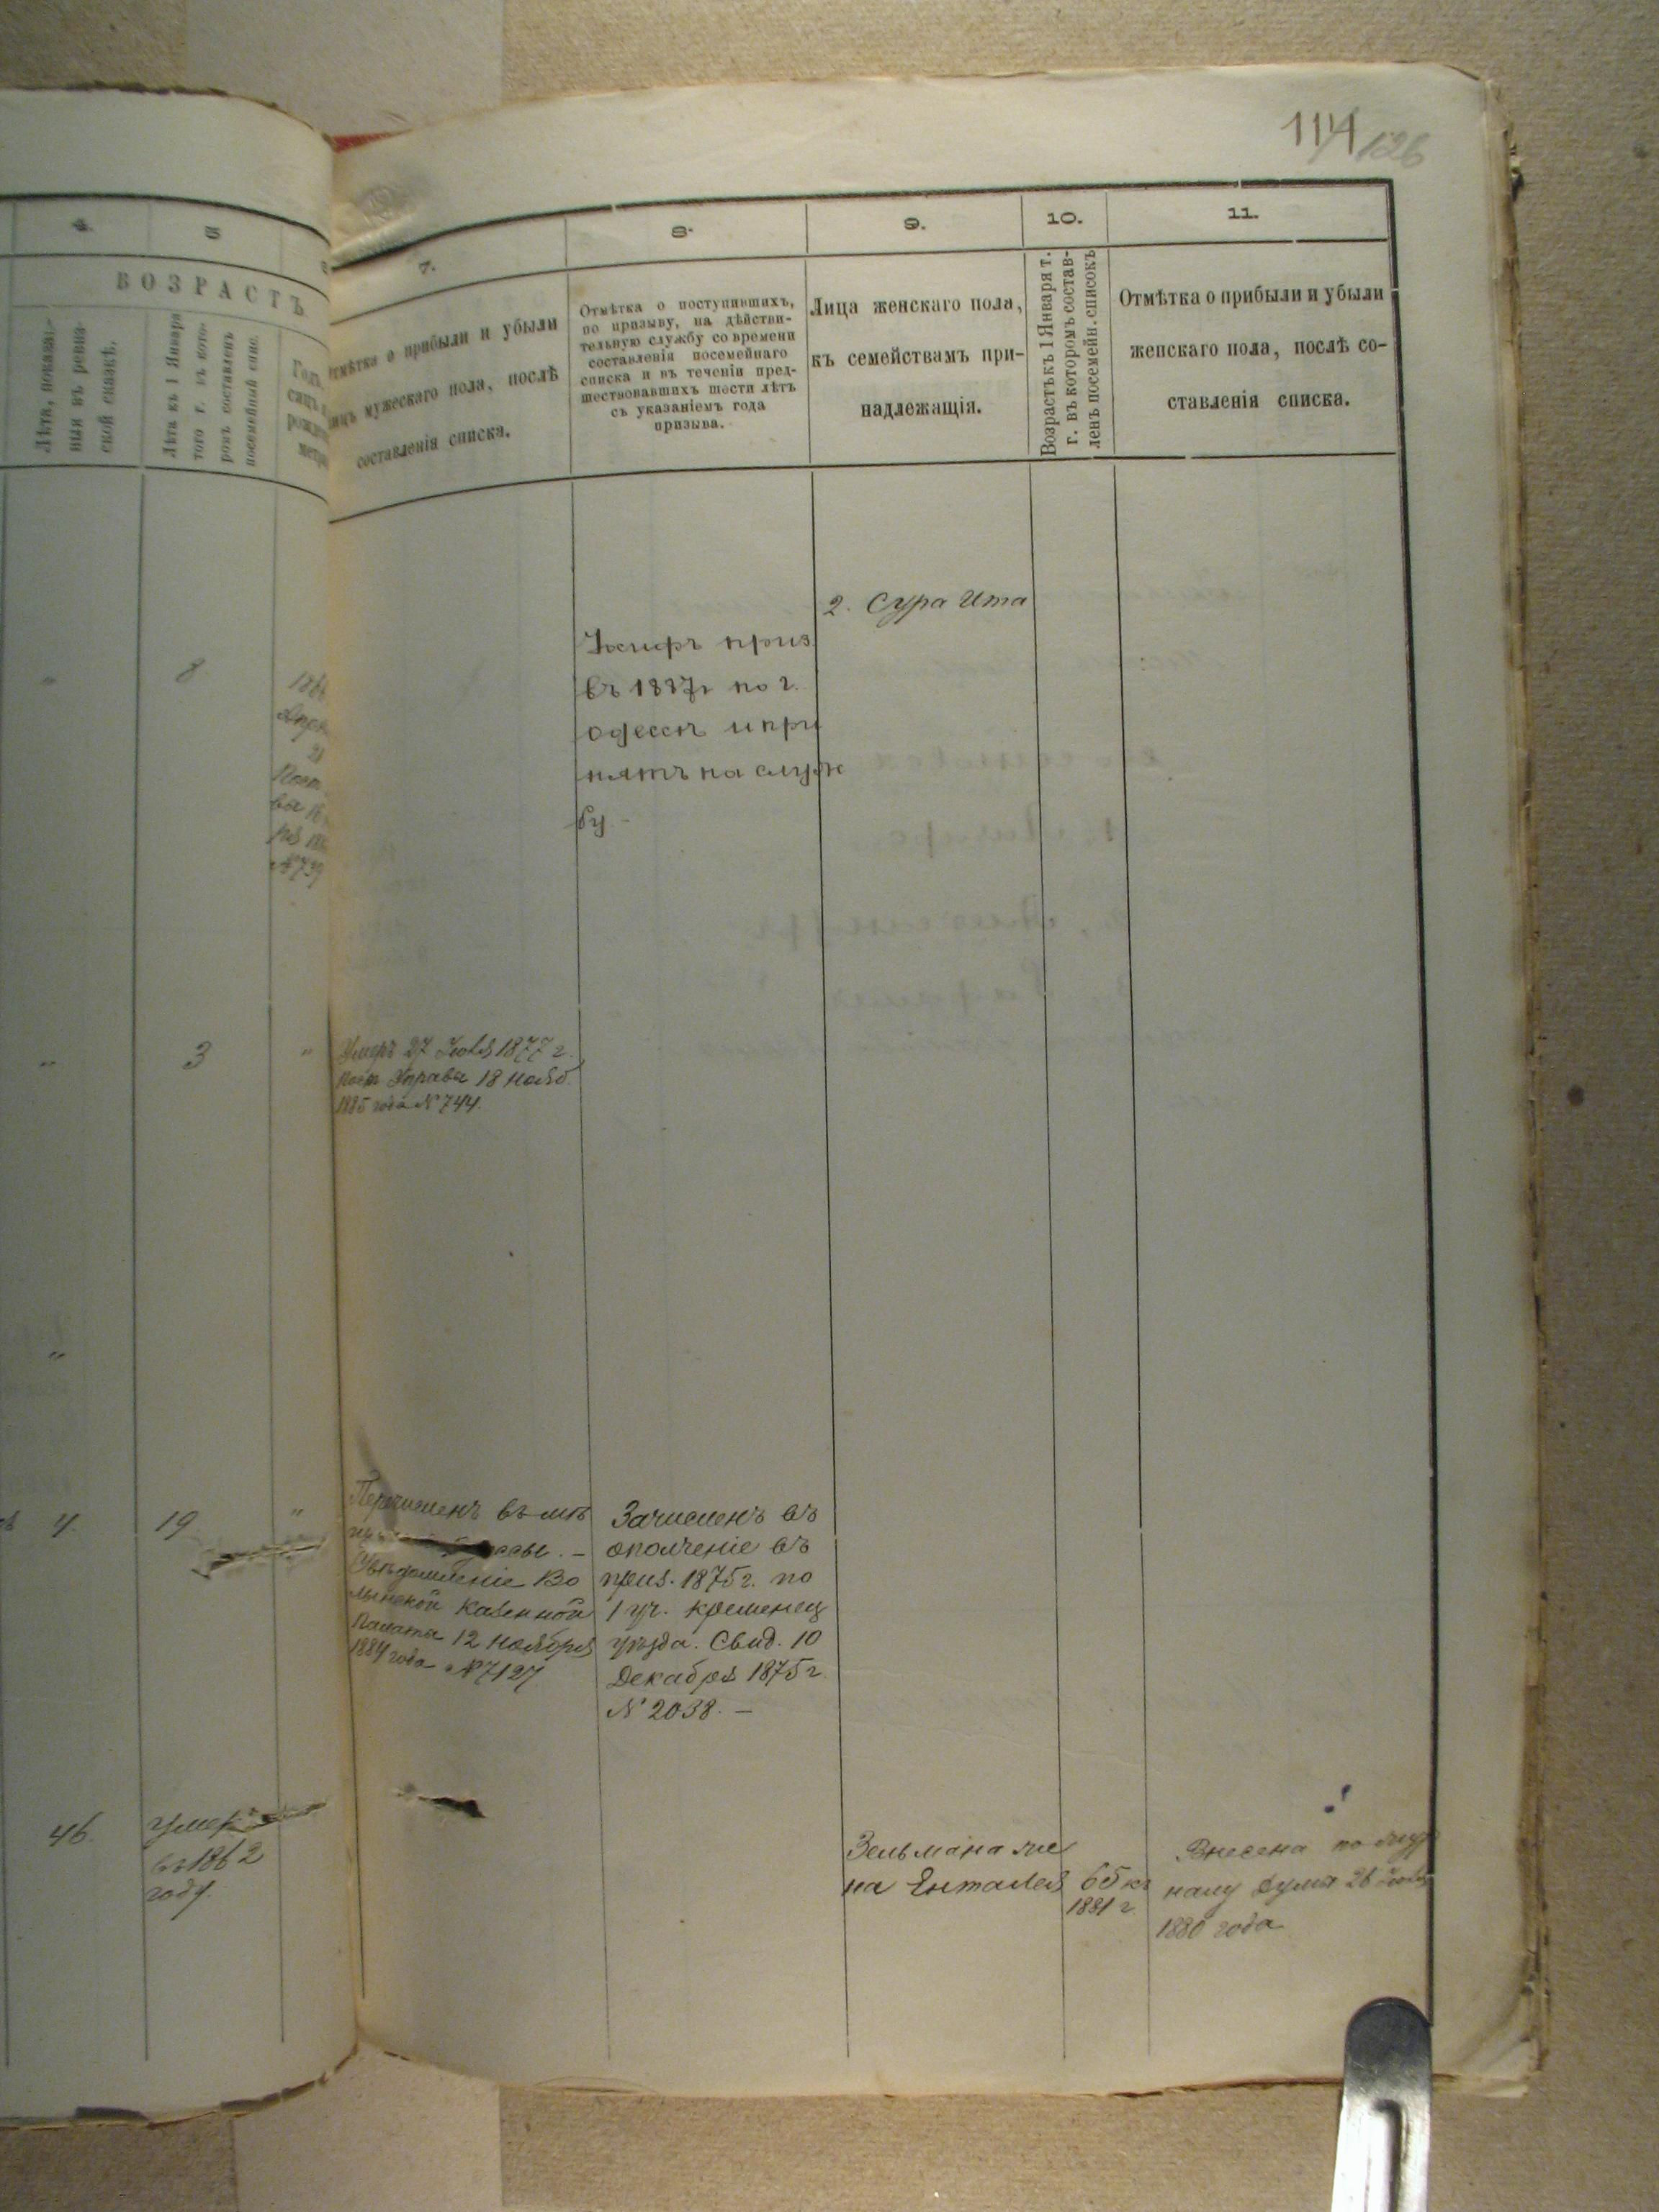 114 126
4.
5
7.
8.
9.
10.
11.
ВОЗРАСТЪ
Лѣта, показан-
ныя въ ревиз-
ской сказкѣ.
Лѣта къ 1 Января
того г. въ кото-
ромъ составленъ
посемейный спис.
Отмѣтка о прибыли и убыли
лицъ мужескаго пола, послѣ
составленія списка.
Отмѣтка о поступившихъ,
по призыву, на дѣйстви-
тельную службу со времени
составленія посемейнаго
списка и въ теченіи пред-
шествовавшихъ шести лѣтъ
съ указаніемъ года
призыва.
Лица женскаго пола,
къ семействамъ при-
надлежащія.
Возрастъ къ 1 Января т.
г. въ которомъ состав-
ленъ посемейн. списокъ
Отмѣтка о прибыли и убыли
женскаго пола, послѣ со-
ставленія списка.
2. Сура Ита
приз
въ 1887г по г.
одессѣ и при
нятъ на служ
бу.
8
21
№739
3
Умеръ 27 Іюля 1877 г.
Пост Управы 18 Нояб.
1885 года №744.
4
19
Перечисленъ въ мѣ
Увѣдомленіе Во
лынской Казенной
Палаты 12 Ноября
1884 года №7127
Зачисленъ въ
ополченіе въ
приз. 1875г. по
1 уч. кременец
уѣзда. Свид. 10
Декабря 1875г
№ 2038. –
46.
умеръ
въ 1862
году.
Зельмана же
на Ентаlея
65 къ
1881 г
Внесена по жур
налу Думы 26
1880 года